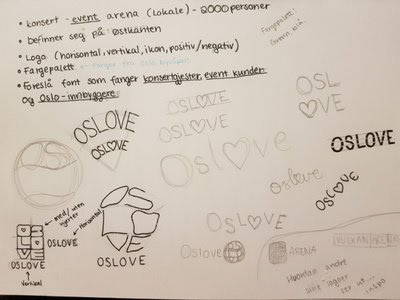 • konsert - event arena (Lokale) - 2000 personer
• befinner seg på Østkanten
• Logo (horisontal, vertikal, ikon, positiv/negativ)
• Fargepalett ← Farger fra Oslo byvåpen
• Foreslå font som fanger konsertgjester, event kunder
og Oslo-innbyggere
Fargepalett:
Grønn, blå,
OSLOVE
OSL♡VE
OSLOVE
OSL♡VE
OSL
♡VE
Osl♡ve
OSLOVE
Oslove
OSL♡VE
OSL♡VE
med/uten
hjerter
Horisontal
OS
LO
VE
OSLOVE
OSLOVE
↑
vertikal
OS
LO
VE
OSLOVE
OSLO
ARENA
VULKAN ARENA
Hvordan andre
sine logoer
ser ut...
inspo